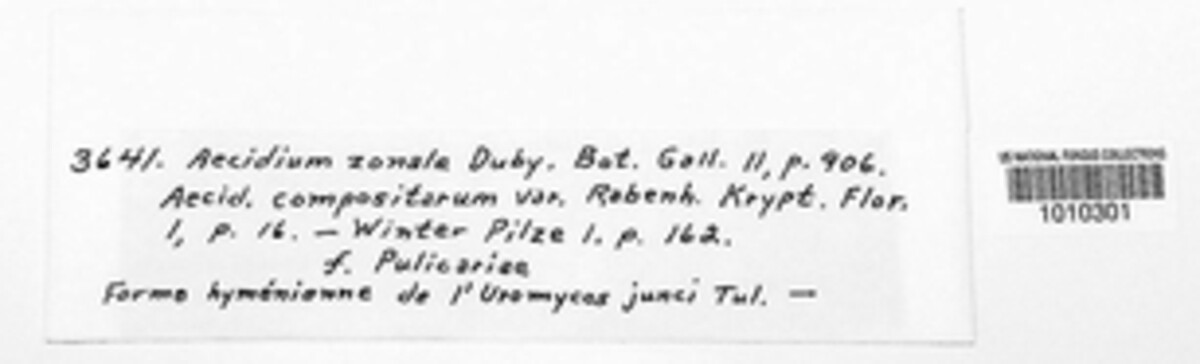 3641. Aecidium zonale Duby. Bot. Gall. II, p. 906.
Aecid. compositarum var. Rabenh. Krypt. Flor.
I, p. 16. — Winter Pilze I. p. 162.
f. Pulicariae
Forme hyménienne de l'Uromyces junci Tul. —
US NATIONAL FUNGUS COLLECTIONS
1010301